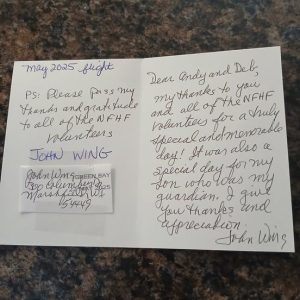 May 2025 flight
PS: Please pass my
thanks and gratitude
to all of the NFHF
Volunteers
JOHN WING
John Wing
GREEN BAY
Marshfield, WI
54449
Dear Andy and Deb,
my thanks to you
and all of the NFHF
Volunteers for a truly
special and memorable
day! It was also a
special day for my
son who was my
guardian. I give
you thanks and
appreciation.
John Wing